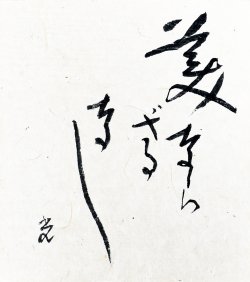 美なら
ざる
なし